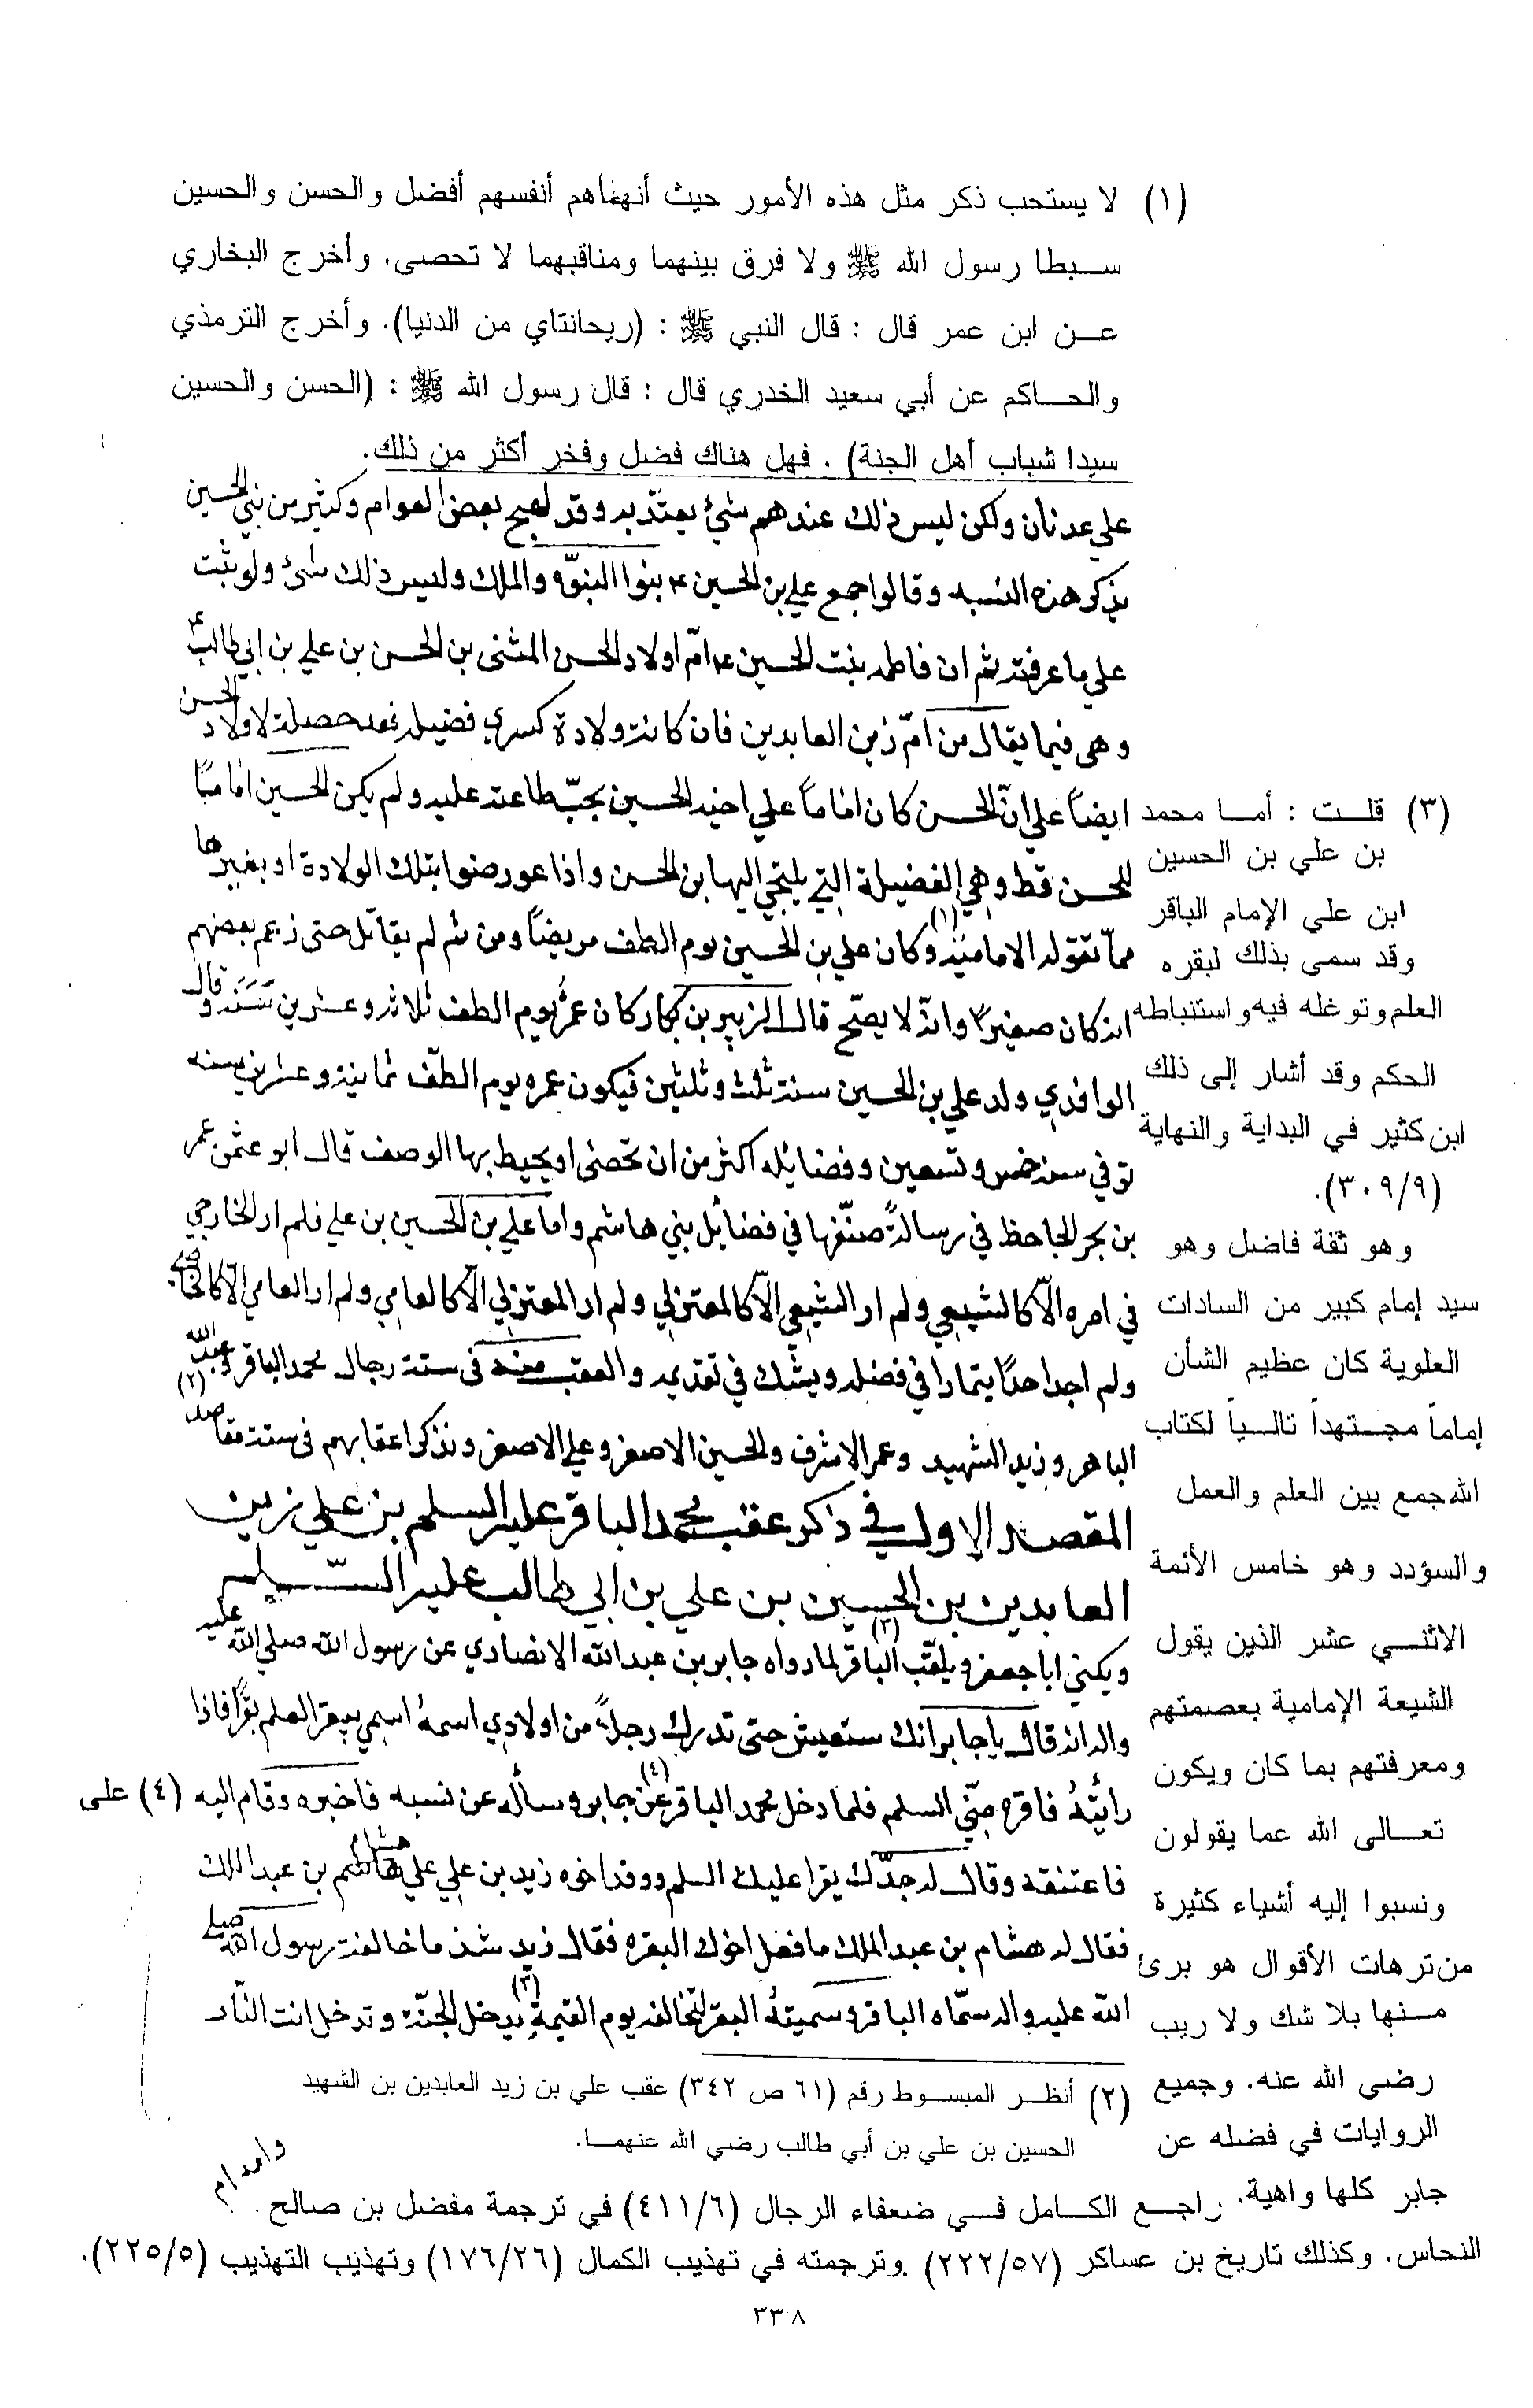 (١) لا يستحب ذكر مثل هذه الأمور حيث أنهماهم أنفسهم أفضل والحسن والحسين
سبطا رسول الله ﷺ ولا فرق بينهما ومناقبهما لا تحصى. وأخرج البخاري
عن ابن عمر قال : قال النبي ﷺ : (ريحانتاي من الدنيا). وأخرج الترمذي
والحاكم عن أبي سعيد الخدري قال : قال رسول الله ﷺ : (الحسن والحسين
سيدا شباب أهل الجنة) . فهل هناك فضل وفخر أكثر من ذلك.
علي عدنان ولكن ليس ذلك عندهم شئ يعتد به وقد لهج بعض العوام وكثير من بني الحسين
بذكر هذه النسبه وقالوا جمع علي بن الحسين ع بنوا النبوّه والملك وليس ذلك شئ ولو ثبت
علي ما عرفته ثم ان فاطمه بنت الحسين ع امّ اولاد الحسن المثنى بن الحسن بن علي بن ابي طالب ع
وهي فيما يقال من امّ زين العابدين فان كانت ولادة كسري فضيله فقد حصلت لاولاد الحسن
ايضاً علي انّ الحسن كان اماماً علي اخيه الحسين يجب طاعته عليه ولم يكن الحسين اماماً
للحسن قط وهي الفضيلة التي يلتجي اليها بن الحسن واذا عورضوا بتلك الولادة او بغيرها
مما تقوله الاماميّة (١) وكان علي بن الحسين يوم الطف مريضاً ومن ثم لم يقاتل حتى زعم بعضهم
انه كان صغيراً وانه لا يصحّ قال الزبير بن بكار كان عمرُه يوم الطف ثلاثه وعشرين سَنَه وقال
الواقدي ولد علي بن الحسين سنة ثلث وثلثين فيكون عمره يوم الطفّ ثمانية وعشرين سنه
توفي سنة خمس وتسعين وفضائله اكثر من ان تحصى او يحيط بها الوصف قال ابو عثمن عمر
بن بحر الجاحظ في رسالةً صنّفها في فضائل بني هاشم واما علي بن الحسين بن علي فلم ار الخارجي
في امره الّا كالشيعي ولم ار الشيعي الّا كالمعتزلي ولم ار المعتزلي الّا كالعامي ولم ار العامي الّا كالخاصي
ولم اجد احداً يتمارا في فضله ويشك في تقديمه والعقب منه في ستة رجال محمد الباقر وعبد الله (٢)
الباهر وزيد الشهيد وعمر الاشرف والحسين الاصغر وعلي الاصغر ونذكر اعقابهم في ستة مقاصد
المقصد الاول في ذكر عقب محمد الباقر عليه السلم بن علي زين
العابدين بن الحسين بن علي بن ابي طالب عليه السّلم
ويكني ابا جعفر ويلقّب الباقر (٣) لما رواه جابر بن عبد الله الانصاري عن رسول الله صلي الله عليه
واله انه قال يا جابر انك ستعيش حتى تدرك رجلاً من اولادي اسمهُ اسمي يبقر العلم بقراً فاذا
رائيتهُ فاقره منّي السلم فلما دخل محمد الباقر (٤) عن جابر وسأله عن نسبه فاخبره وقام اليه
فاعتنقه وقال له جدّك يقرا عليك السلم ووفد اخوه زيد بن علي علي هشام هاشم بن عبد الملك
فقال له هشام بن عبد الملك ما فعل اخوك البقره فقال زيد شذ ما خالفت رسول الله صلى
الله عليه واله سمّاه الباقر وسميتهُ البقر لتخالفه يوم القيمة (٣) يدخل الجنّة وتدخل انت النّار
(٣) قلت : أما محمد
بن علي بن الحسين
ابن علي الإمام الباقر
وقد سمى بذلك لبقره
العلم وتوغله فيه واستنباطه
الحكم وقد أشار إلى ذلك
ابن كثير في البداية والنهاية
(٣٠٩/٩).
وهو ثقة فاضل وهو
سيد إمام كبير من السادات
العلوية كان عظيم الشأن
إماماً مجتهداً تالياً لكتاب
الله جمع بين العلم والعمل
والسؤدد وهو خامس الأئمة
الاثني عشر الذين يقول
الشيعة الإمامية بعصمتهم
ومعرفتهم بما كان ويكون
تعالى الله عما يقولون
ونسبوا إليه أشياء كثيرة
من ترهات الأقوال هو برئ
منها بلا شك ولا ريب
رضي الله عنه. وجميع
الروايات في فضله عن
جابر كلها واهية. راجع الكامل في ضعفاء الرجال (٤١١/٦) في ترجمة مفضل بن صالح
النحاس. وكذلك تاريخ بن عساكر (٢٢٢/٥٧) وترجمته في تهذيب الكمال (١٧٦/٢٦) وتهذيب التهذيب (٢٢٥/٥).
(٤) على
(٢) أنظر المبسوط رقم (٦١ ص ٣٤٢) عقب علي بن زيد العابدين بن الشهيد
الحسين بن علي بن أبي طالب رضي الله عنهما.
٣٣٨